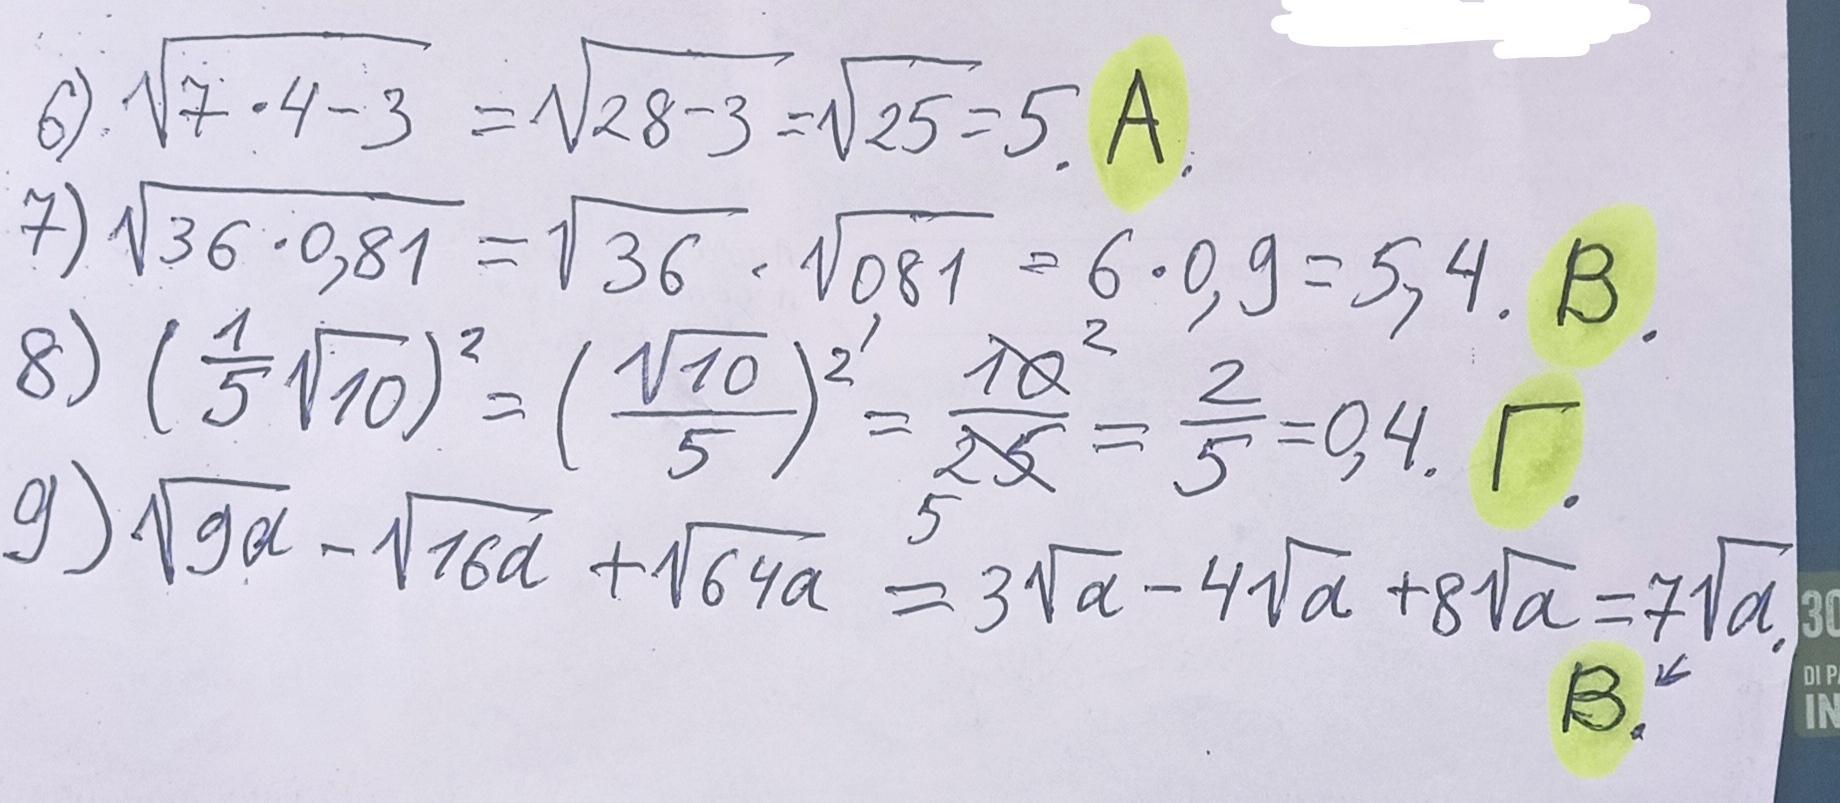 6). √7·4-3 = √28-3 = √25 = 5. А.
7) √36·0,81 = √36 · √0,81 = 6·0,9 = 5,4. В.
8) (1/5 √10)² = (√10/5)² = 10/25 = 2/5 = 0,4. Г.
2
5
9) √9a - √16a + √64a = 3√a - 4√a + 8√a = 7√a.
В.
30
DI PA
IN